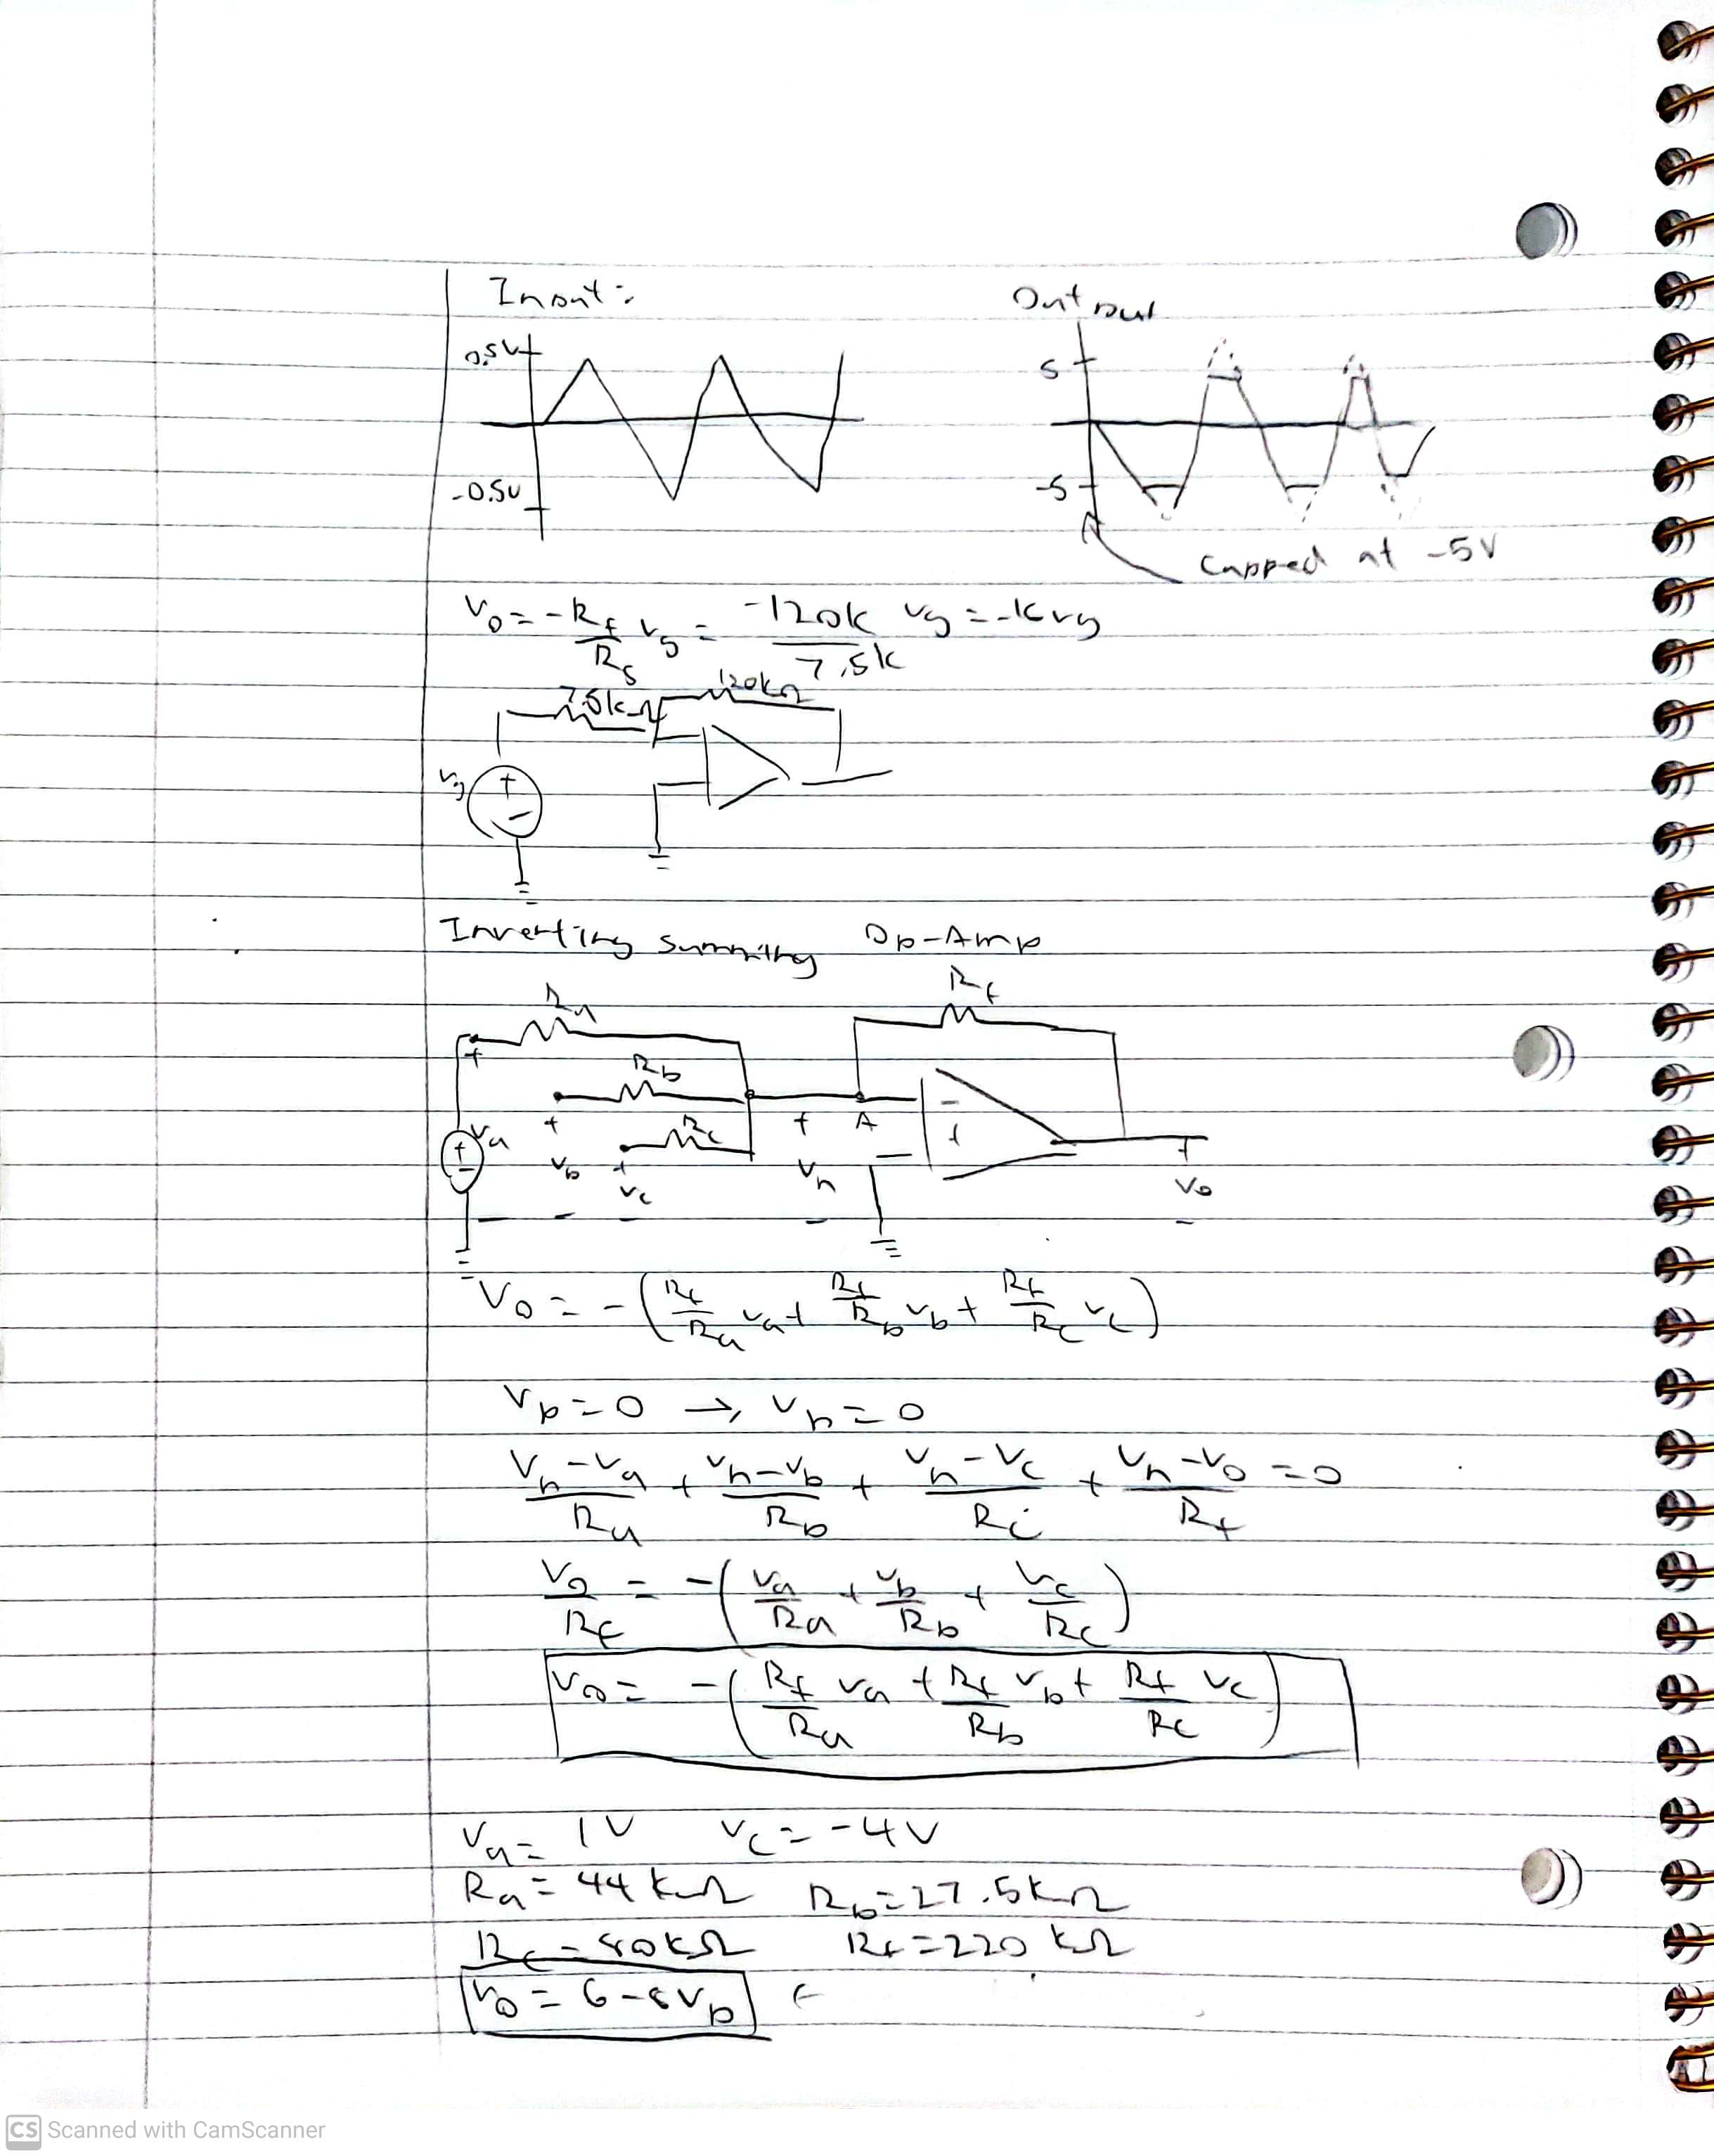 Input:
Output
0.5V
-0.5V
5
-5
Capped at -5V
Vo = -Rf/Rs vg = -120k/7.5k vg = -16vg
7.5kΩ 120kΩ
vg + -
Inverting Summing Op-Amp
Ra Rf
+ Rb
+ va + Rc + A - +
- vb + vc vn + vo
- - - - -
Vo = -(Rf/Ra va + Rf/Rb vb + Rf/Rc vc)
Vp = 0 → Vn = 0
(Vn - Va)/Ra + (Vn - Vb)/Rb + (Vn - Vc)/Rc + (Vn - Vo)/Rf = 0
Vo/Rf = -(Va/Ra + Vb/Rb + Vc/Rc)
Vo = -(Rf/Ra va + Rf/Rb vb + Rf/Rc vc)
Va = 1V Vc = -4V
Ra = 44 kΩ Rb = 27.5kΩ
Rc = 80kΩ Rf = 220 kΩ
Vo = 6 - 8Vb
CS Scanned with CamScanner